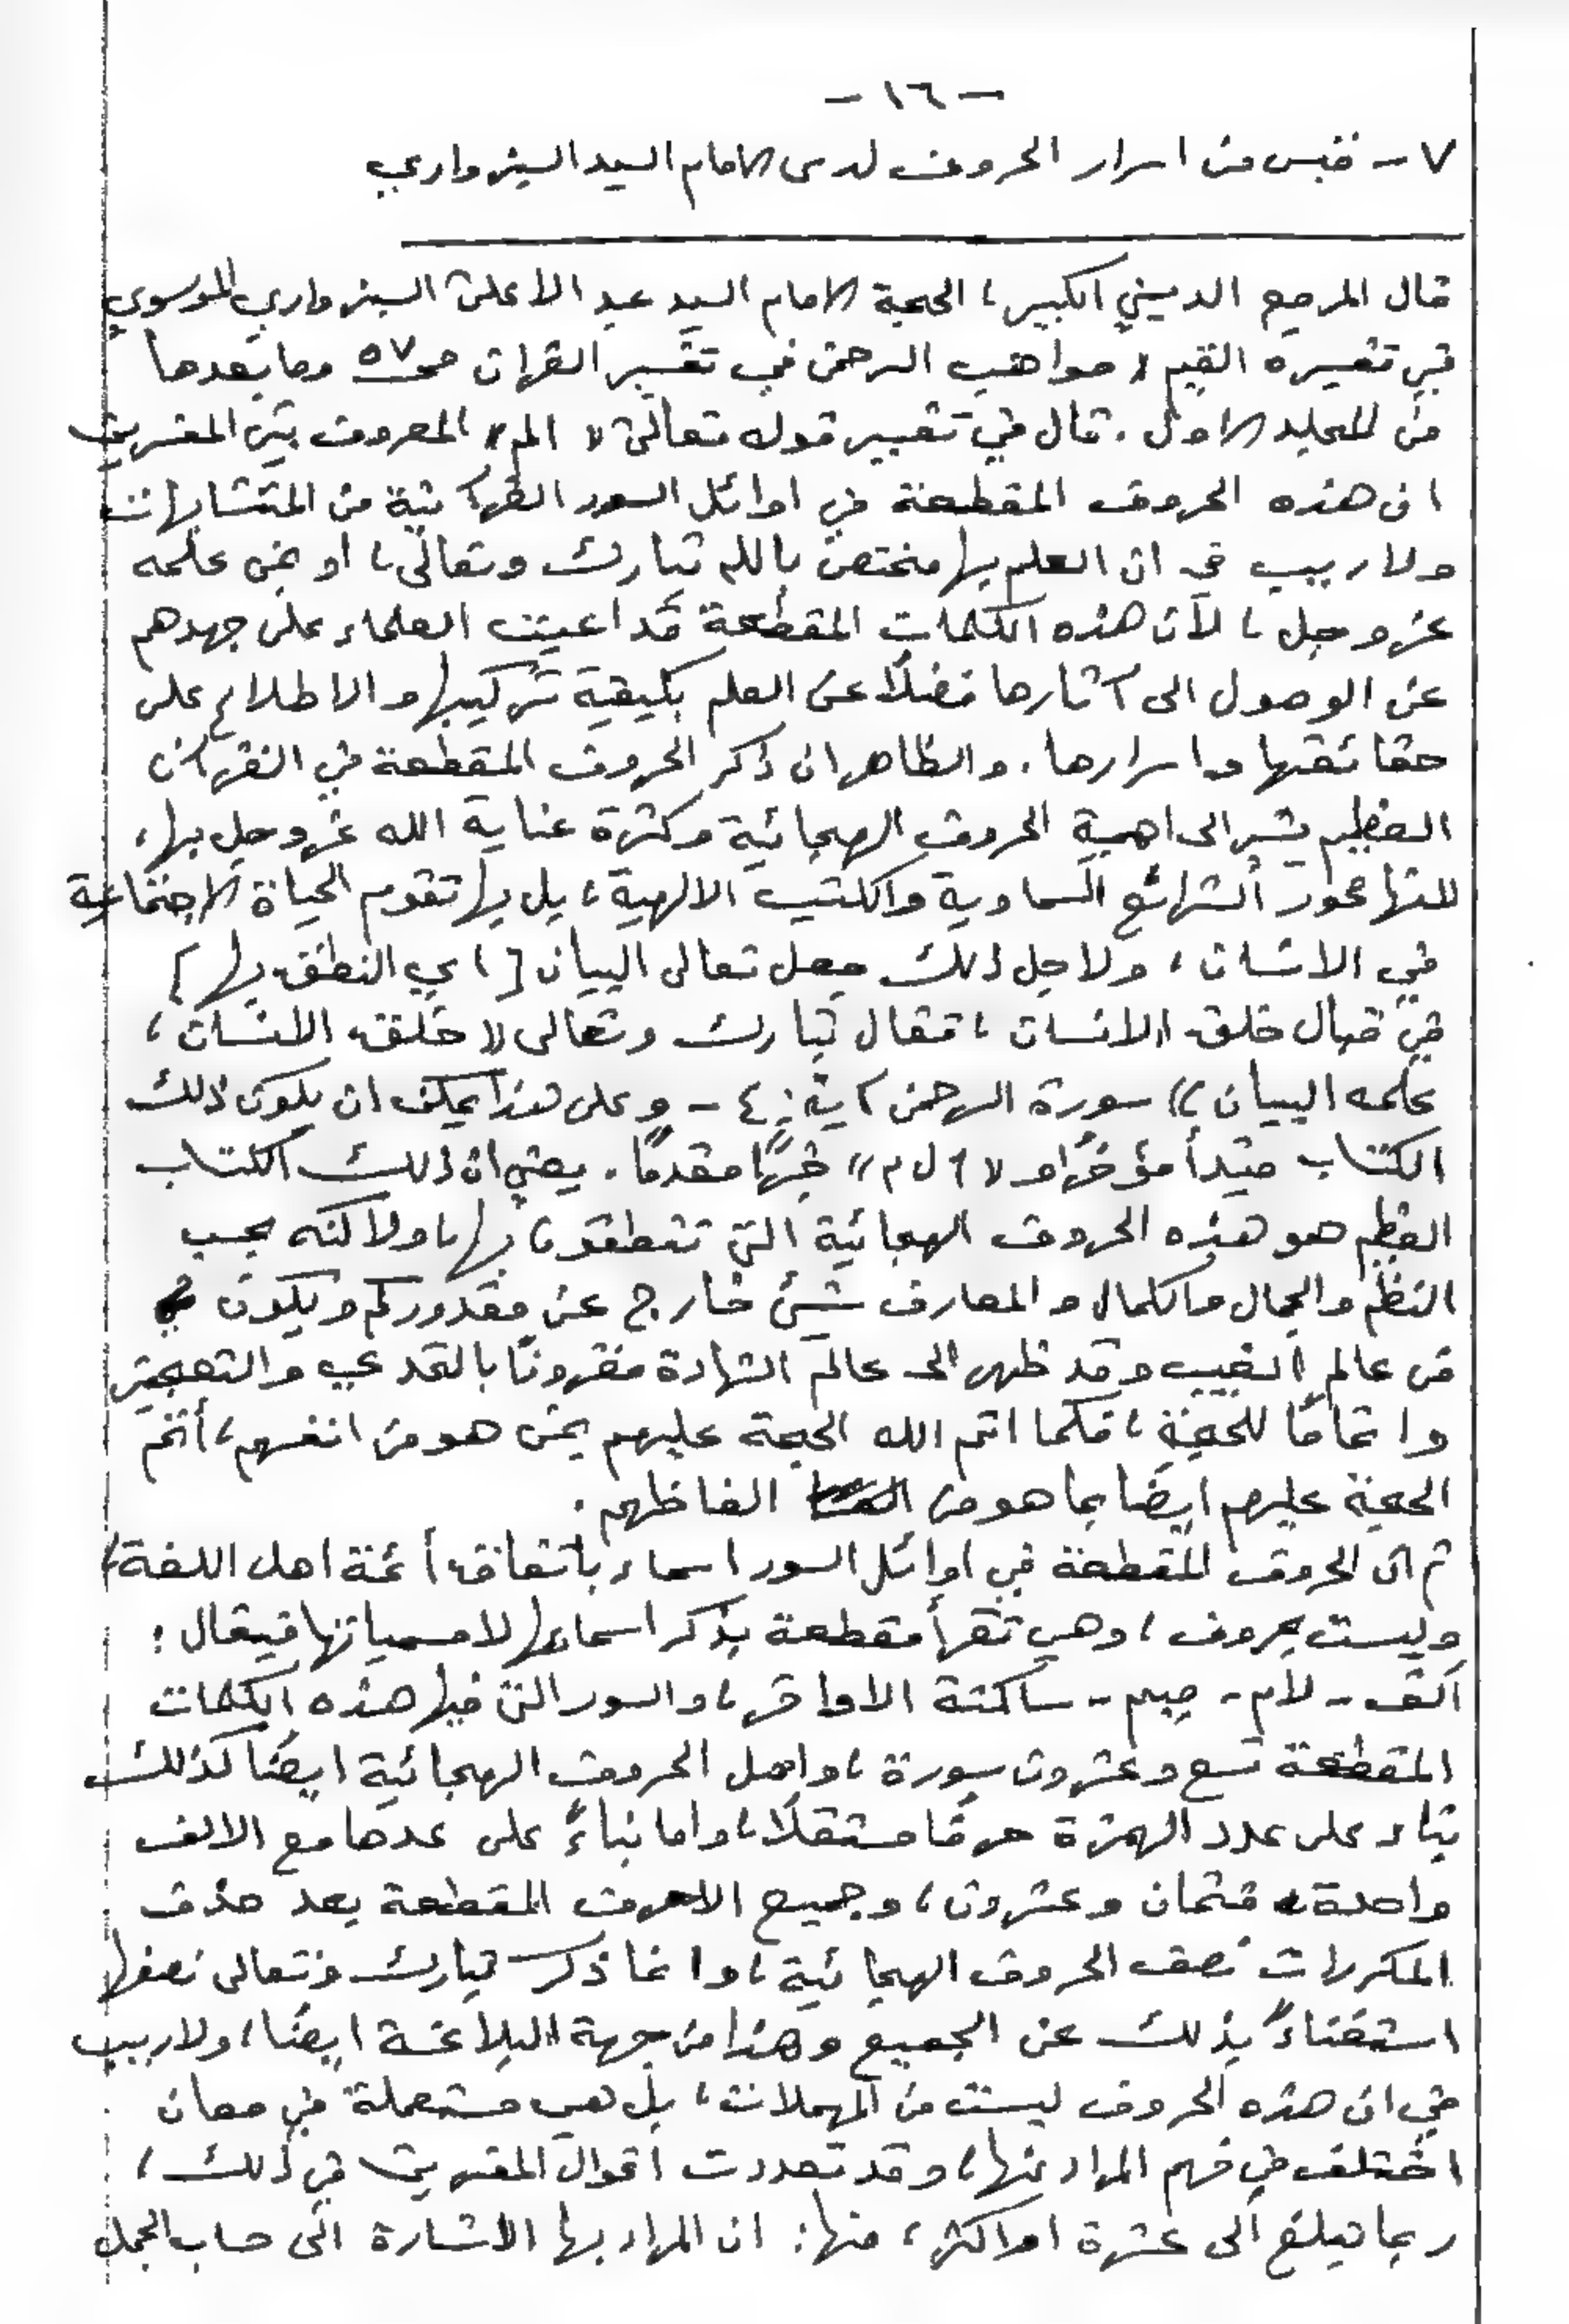 - ١٦ -
٧ - قبس من اسرار الحروف لدى الامام السيد السبزواري
قال المرجع الديني الكبير، الحجة الامام السيد عبد الاعلى السبزواري الموسوي
في تفسيره القيم « مواهب الرحمن في تفسير القرآن ص ٥٧ وما بعدها
من المجلد الاول. قال في تفسير قوله تعالى « الم » المعروف بين المفسرين
ان هذه الحروف المقطعة في اوائل السور القرآنية من المتشابهات
ولا ريب في ان العلم بها مختص بالله تبارك وتعالى، او بمن علمه
عز وجل، لأن هذه الكلمات المقطعة قد اعيت العلماء على جهدهم
عن الوصول الى آثارها فضلاً عن العلم بكيفية تركيبها والاطلاع على
حقائقها واسرارها. والظاهر ان ذكر الحروف المقطعة في القرآن
العظيم يشير الى اهمية الحروف الهجائية وكثرة عناية الله عز وجل بها،
لانها محور الشرائع السماوية والكتب الالهية، بل بها تقوم الحياة الاجتماعية
في الانسان، ولاجل ذلك جعل تعالى البيان [ اي النطق بها ]
في قبال خلق الانسان، فقال تبارك وتعالى « خلق الانسان،
علمه البيان » سورة الرحمن آية: ٤ - وعلى هذا يمكن ان يكون ذلك
الكتاب مبتدأ مؤخراً و « ا ل م » خبراً مقدماً. يعني ان ذلك الكتاب
العظيم هو هذه الحروف الهجائية التي تنطقون بها، ولاكنه بحسب
النظم والجمال والكمال والمعارف شيئ خارج عن مقدوركم ويكون
من عالم الغيب وقد ظهر الى عالم الشهادة مقروناً بالتحدي والتعجيز
واتماماً للحجة، فكما اتم الله الحجة عليهم بمن هو من انفسهم، أتم
الحجة عليهم ايضاً بما هو من الفاظهم.
ثم ان الحروف المقطعة في اوائل السور اسماء باتفاق أئمة اهل اللغة،
وليست بحروف، وهي تقرأ مقطعة بذكر اسمائها لا مسمياتها فيقال:
الف - لام - ميم - ساكنة الاواخر، والسور التي فيها هذه الكلمات
المقطعة تسع وعشرون سورة، واصل الحروف الهجائية ايضاً كذلك
بناء على عدد الهمزة حرفاً مستقلاً، واما بناءً على عدها مع الالف
واحدة فثمان وعشرون، وجميع الاحرف المقطعة بعد حذف
المكررات نصف الحروف الهجائية، وانما ذكر تبارك وتعالى نصفها
استغناءً بذلك عن الجميع وهذا من جهة البلاغة ايضاً، ولا ريب
في ان هذه الحروف ليست من المهملات، بل هي مستعملة في معان
اختلف في فهم المراد منها، وقد تعددت اقوال المفسرين في ذلك،
ربما تبلغ الى عشرة او اكثر، منها: ان المراد بها الاشارة الى حساب الجمل